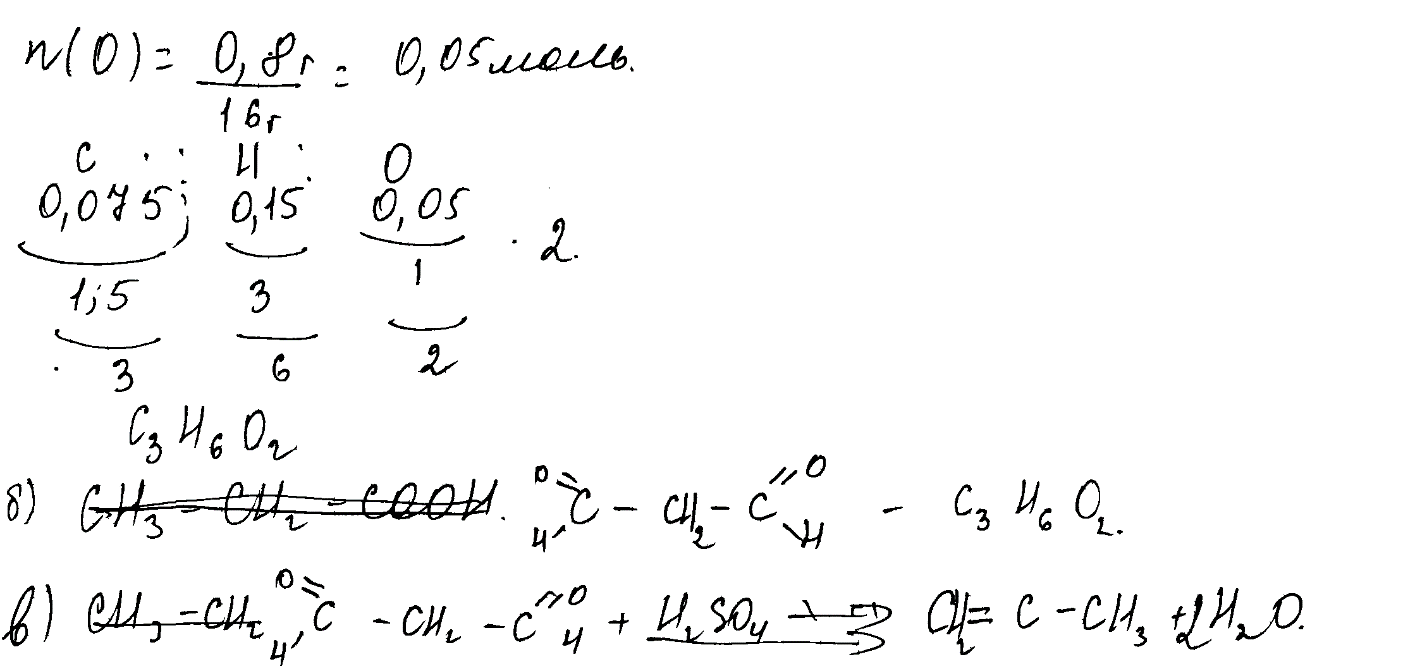 n(O) = 0,8г / 16г = 0,05 моль.
C : H : O
0,075 ; 0,15 0,05 · 2.
1,5 3 1
3 6 2
C₃H₆O₂
б) CH₃ – CH₂ – COOH. O=C(H) – CH₂ – C(=O)H – C₃H₆O₂.
в) CH₃ – CH₂ O=C(H) – CH₂ – C(=O)H + H₂SO₄ → CH₂ = C – CH₃ + 2H₂O.